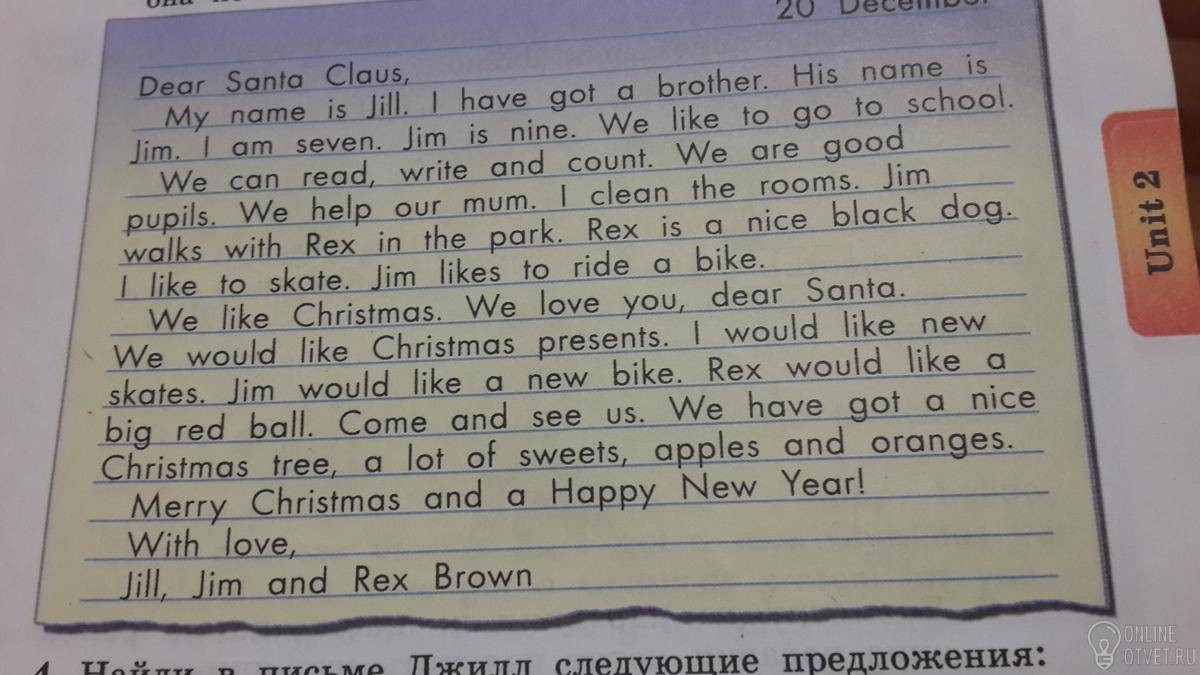 20 December
Dear Santa Claus,
My name is Jill. I have got a brother. His name is
Jim. I am seven. Jim is nine. We like to go to school.
We can read, write and count. We are good
pupils. We help our mum. I clean the rooms. Jim
walks with Rex in the park. Rex is a nice black dog.
I like to skate. Jim likes to ride a bike.
We like Christmas. We love you, dear Santa.
We would like Christmas presents. I would like new
skates. Jim would like a new bike. Rex would like a
big red ball. Come and see us. We have got a nice
Christmas tree, a lot of sweets, apples and oranges.
Merry Christmas and a Happy New Year!
With love,
Jill, Jim and Rex Brown
Unit 2
4. Найди в письме Джилл следующие предложения:
ONLINE
OTVET.RU